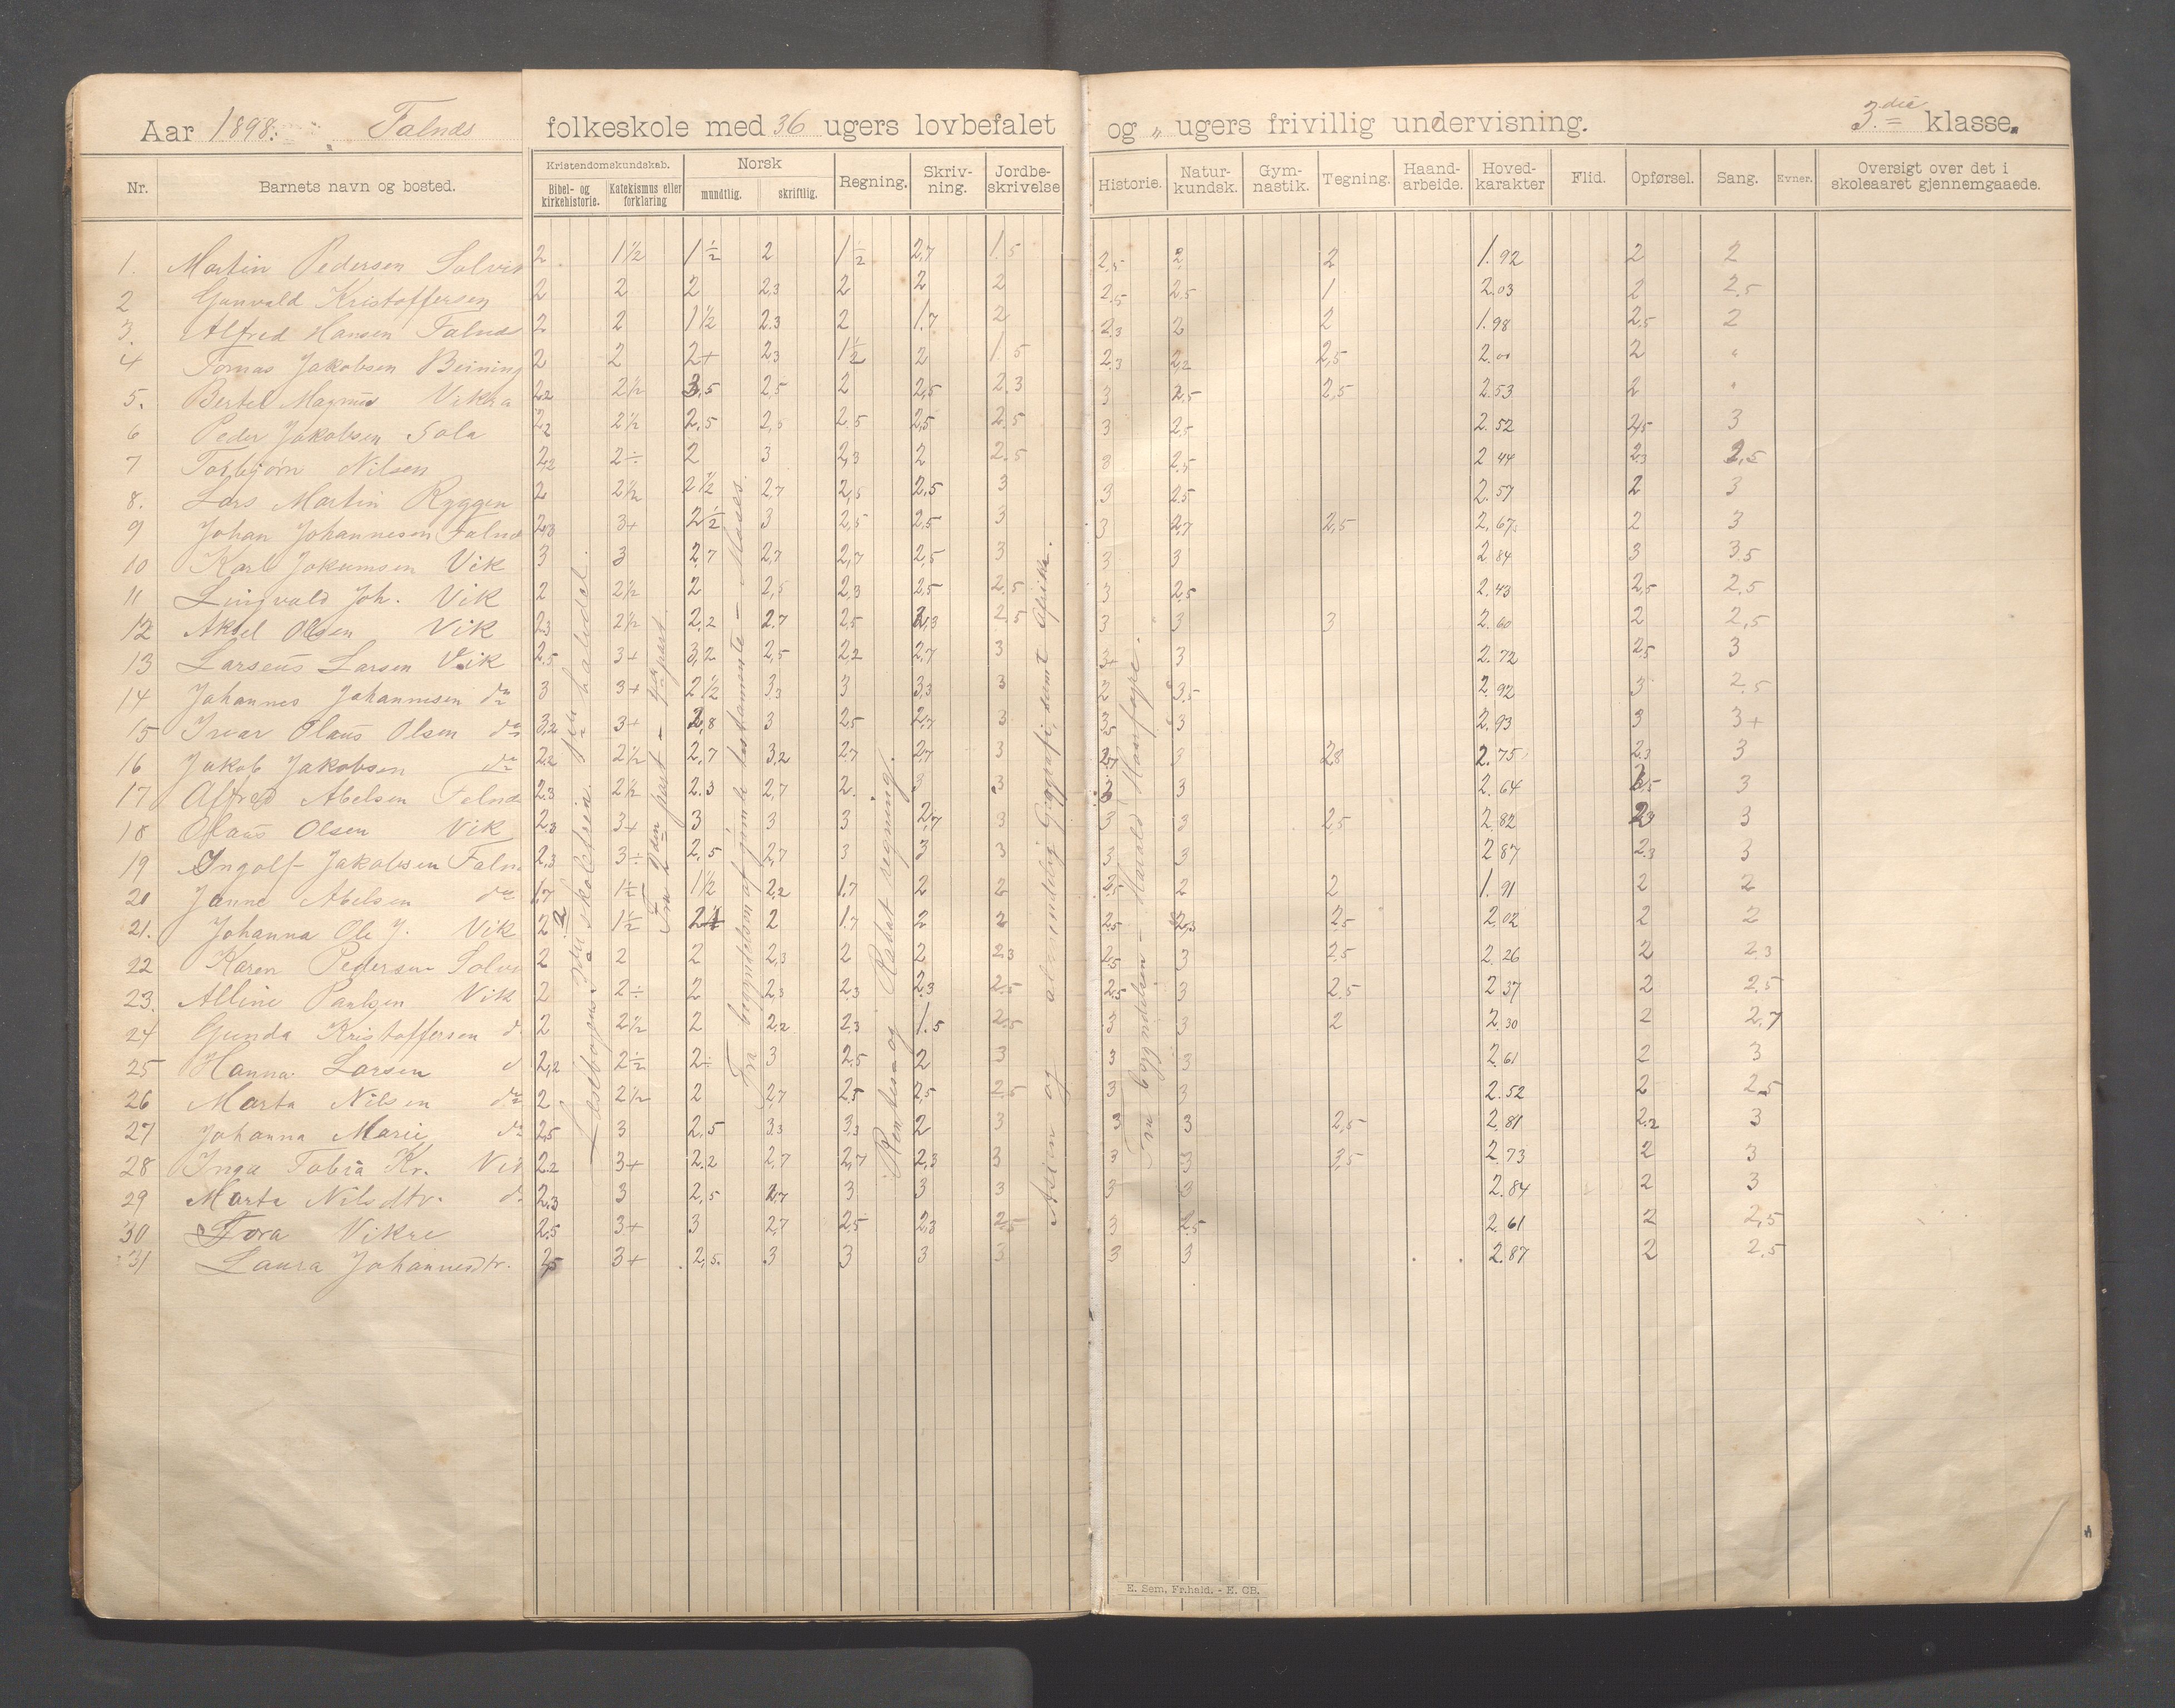 Aar 1898. Falnds folkeskole med 36 ugers lovbefalet og " ugers frivillig undervisning. 3.die klasse.
Nr. Barnets navn og bosted. Kristendomskundskab. Bibel- og kirkehistorie. Katekismus eller forklaring Norsk mundtlig. skriftlig. Regning. Skriv-ning. Jordbe-skrivelse Historie. Natur-kundsk. Gym-nastik. Tegning. Haand-arbeide. Hoved-karakter Flid. Opførsel. Sang. Evner. Oversigt over det i skoleaaret gjennemgaaede.
1. Martin Pedersen 2 1½ 1½ 2 1½ 2,7 1.5 2,5 2 2 1.92 2 2
2 Gunvald Kristoffersen 2 2 2 2,3 2 2 2 2,5 2,5 1 2.03 2 2,5
3. Alfred Hansen Falnds 2 2 1½ 2.3 2 1.7 2 2,3 2 2 1.98 2,5 2
4 Tomas Jakobsen 2 2 2+ 2,3 1½ 2 1.5 2,3 2,2 2,5 2.00 2 "
5. Bertel Magnus Vikra 2,2 2½ 3,5 2,5 2 2,5 2.3 3 2,5 2,5 2.53 2 "
6 Peder Jakobsen Sola 2,2 2½ 2,5 2,5 2,5 2,5 2.5 3 2,5 2.52 3
7 Torbjørn Nilsen 2,2 2÷ 2 3 2,3 2 2.5 3 2,5 2.44 2,3 2,5
8. Lars Martin Ryggen 2 2½ 2½ 2,7 2,5 2,5 3 3 2,5 2.57 2 3
9 Johan Johannesen Falnd 2,3 3+ 2½ 3 2,5 2,5 3 3 2,7 2,5 2,67 2 3
10 Karl Jokumsen Vik 3 3 2,7 2,7 2,7 2,5 3 3 3 2.84 3 3,5
11 Lingvald Joh. Vik 2 2½ 2 2,5 2,3 2,5 2,5 3 2,5 2.43 2,5 2,5
12 Aksel Olsen Vik 2,3 2½ 2,2 2.7 2,5 2,3 2,5 3 3 3 2.60 2 2,5
13 Larseus Larsen Vik 2,5 3+ 3,2 2,5 2,2 2,7 3 3+ 3 2.72 2,5 3
14 Johannes Johannesen do 3 3+ 2½ 3,3 3 3,3 3 3,5 2.92 3 2,5
15 Ivar Olaus Olsen do 3,2 3+ 2,8 3 2,5 2,7 3 3,5 3 2.93 3 3+
16 Jakob Jakobsen do 2,2 2½ 2,7 3,2 2,7 2,7 3 2,7 3 2,8 2.75 2,3 3
17 Alfred Abelsen Falnds 2,3 2½ 2.3 2,7 2. 3 3 3 3 2.64 3
18 Olaus Olsen Vik 2,3 3+ 3 3 3 2,7 3 3 3 2,5 2.82 2,3 3
19 Ingolf Jakobsen Faln 2,3 3÷ 2,5 2,7 3 3 3 3 3 2.87 2,3 3
20 Janne Abelsen do 1,7 1½ 1½ 2,2 1,7 2 2 2,5 2 2 1.91 2 2
21. Johanna Ole J. Vik 2 1½ 2 1.7 2 2 2,5 2,3 2,5 2.02 2 2
22 Karen Pedersen 2 2 2 2,3 2 2 2,3 2,5 3 2,5 2.26 2 2,3
23. Alline Paulsen Vik 2 2÷ 2 2,3 2,3 2,3 2,5 2,5 3 2.5 2.37 2 2,5
24 Gunda Kristoffersen d 2 2½ 2 2,2 2,3 1.5 2,5 3 3 2 2.30 2 2,7
25 Hanna Larsen d 2,2 2½ 2÷ 3 2,5 2 3 3 3 2.61 2 3
26 Marta Nilsen do 2 2½ 2 2,7 2,5 2,5 2,5 3 3 2.52 2 2,5
27 Johanna Marie do 2,5 3 2,5 3,3 3,3 2 3 3 3 2,5 2.81 2,2 3
28 Inga Tobia Kr. Vik 2,2 3+ 2.2 2,7 2,7 2,3 3 3 3 3,5 2.73 2 3
29 Marta Nilsdtr. d 2,3 3 2,5 2,7 3 3 3 3 3 2.84 2 3
30 Tora Vikre 2,5 3+ 3 2,7 2,5 2,3 2,5 3 2,5 2.61 2 2,5
31 Laura Johannesdtr. 2,5 3+ 2,5. 3 3 3 3 3 3 2.87 2 2,5
Fra 2den part –
Fra begyndelsen af gamle testamente – Moses.
Rentes- og Rabat regning.
Asien og almindelig Geografi, samt Afrika.
Fra begyndelsen – Harald Haarfagre.
E. Sem, Fr.hald. - E. CB.